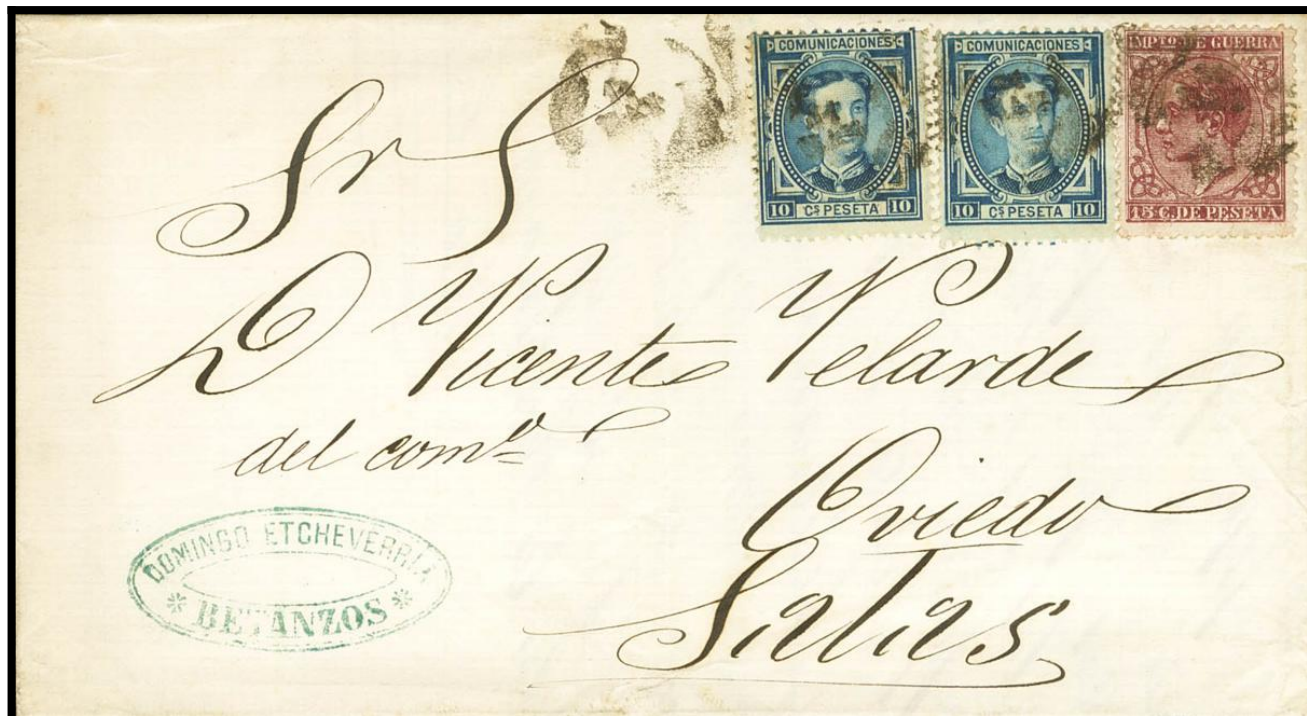 COMUNICACIONES
10 Cs PESETA 10
COMUNICACIONES
10 Cs PESETA 10
IMPTO. DE GUERRA
15 C. DE PESETA
Sr S
D Vicente Velarde
del como
Oviedo
Salas
DOMINGO ETCHEVERRIA
* BETANZOS *